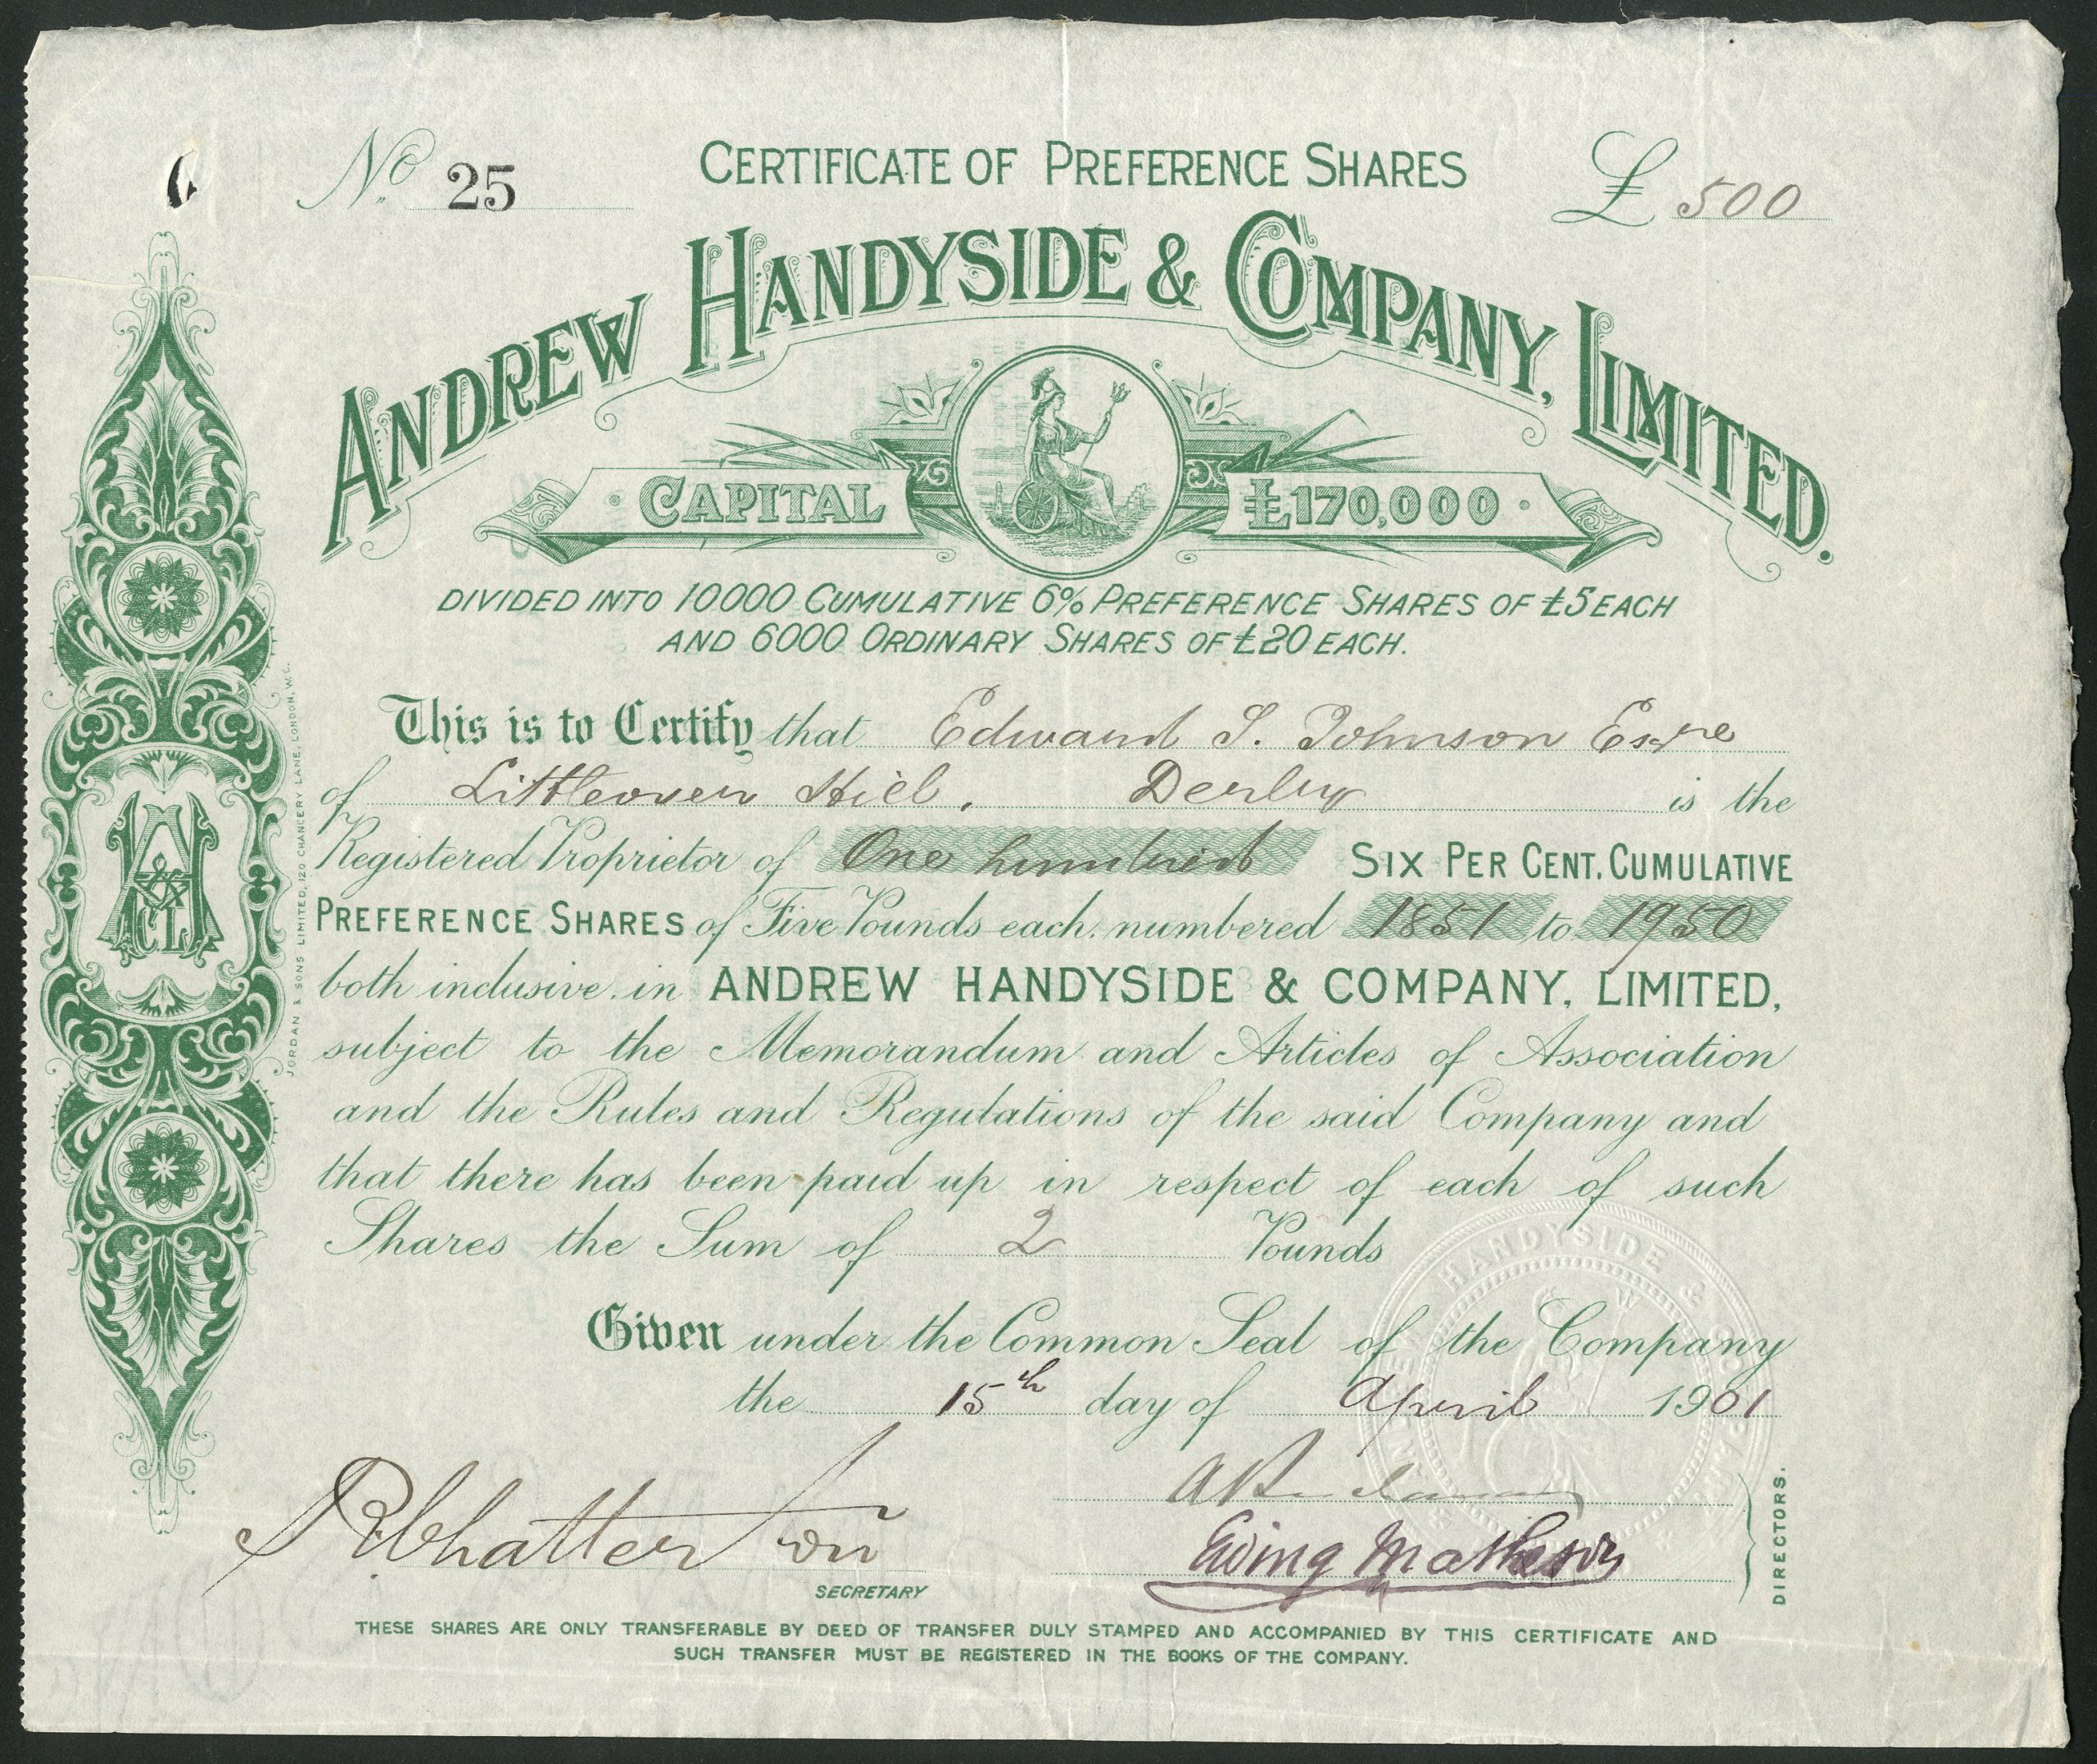 No. 25
CERTIFICATE OF PREFERENCE SHARES
£ 500
ANDREW HANDYSIDE & COMPANY, LIMITED.
CAPITAL £170,000
DIVIDED INTO 10000 CUMULATIVE 6% PREFERENCE SHARES OF £5 EACH
AND 6000 ORDINARY SHARES OF £20 EACH.
This is to Certify that Edward S. Johnson Esqre
of Littleover Hill, Derby is the
Registered Proprietor of One hundred SIX PER CENT. CUMULATIVE
PREFERENCE SHARES of Five Pounds each, numbered 1851 to 1950
both inclusive, in ANDREW HANDYSIDE & COMPANY, LIMITED,
subject to the Memorandum and Articles of Association
and the Rules and Regulations of the said Company and
that there has been paid up in respect of each of such
Shares the Sum of 2 Pounds
Given under the Common Seal of the Company
the 15th day of April 1901
Ewing Matheson
DIRECTORS.
SECRETARY
THESE SHARES ARE ONLY TRANSFERABLE BY DEED OF TRANSFER DULY STAMPED AND ACCOMPANIED BY THIS CERTIFICATE AND
SUCH TRANSFER MUST BE REGISTERED IN THE BOOKS OF THE COMPANY.
JORDAN & SONS LIMITED, 120 CHANCERY LANE, LONDON, W.C.
HANDYSIDE &